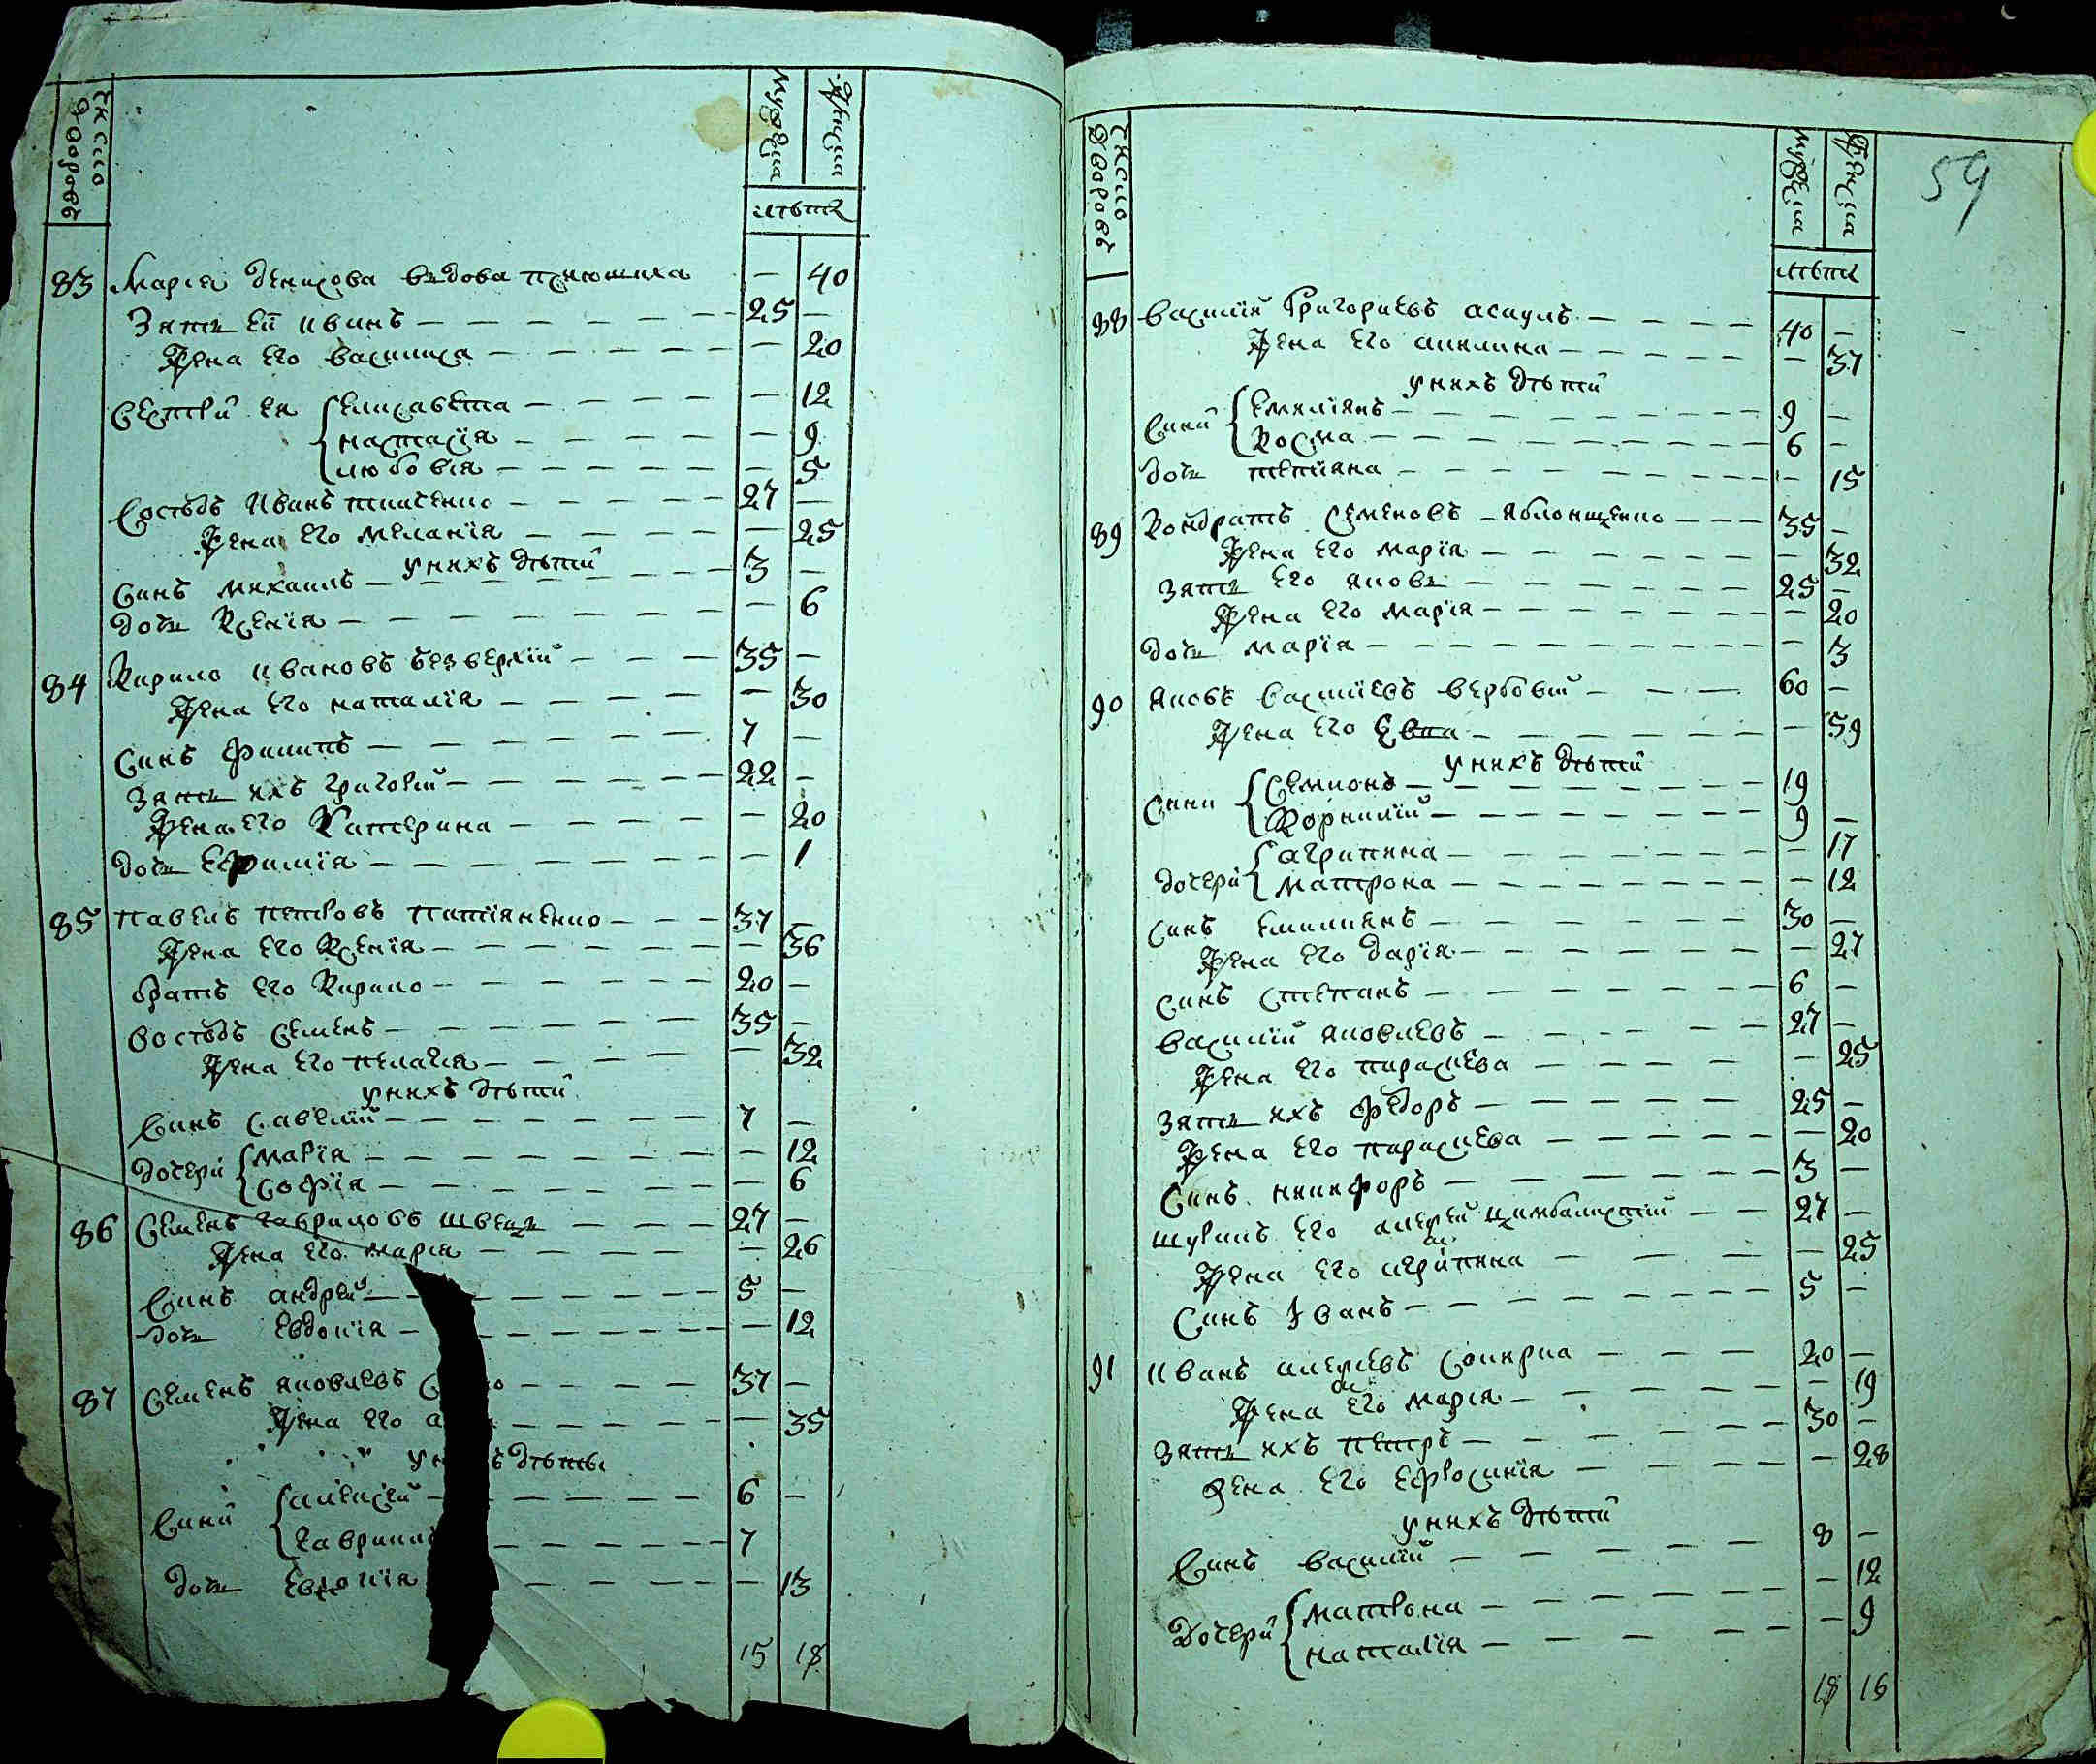 Число дворовъ
Мужеска
Женска
лѣта
83 Мария Денисова вдова 40
Зять ей иванъ 25
Жена его василиса 20
Сестры ея Елисавета 12
настасїя 9
любовїя 5
Сосѣдъ Иванъ 27
Жена его меланїя 25
у нихъ дѣти
Синъ михаилъ 3
дочь Ксенїя 6
84 Кирило ивановъ безверхїй 35
Жена его наталїя 30
Синъ филипъ 7
Зять ихъ григорий 22
Жена его Катерина 20
дочь Ефимїя 1
85 павелъ петровъ 37
Жена его Ксенїя 36
братъ его Кирило 20
сосѣдъ Семенъ 35
Жена его пелагея 32
у нихъ дѣти
Синъ Савелїй 7
дочери марїя 12
Софїя 6
86 Семенъ гавриловъ швець 27
Жена его мария 26
Синъ андрей 5
дочь Евдокїя 12
87 Семенъ яковлевъ 37
Жена его 35
дѣти
Сини алексей 6
гаврил 7
дочь Евдокїя 13
15 18
59
Число дворовъ
Мужеска
Женска
лѣта
88 василїй Григориевъ асаулъ 40
Жена его акилина 37
у нихъ дѣти
Сини Емилїянъ 9
Косма 6
дочь тетїяна 15
89 Кондратъ Семеновъ яблонщенко 35
Жена его марїя 32
зять его яковъ 25
Жена его марїя 20
дочь марїя 3
90 яковъ василїевъ вербовий 60
Жена его Евва 59
у нихъ дѣти
Сини Семионъ 19
Корнилїй 9
дочери агрипина 17
матрона 12
синъ Емилиянъ 30
Жена его дарїя 27
синъ Степанъ 6
василїй яковлевъ 27
Жена его параскева 25
зять ихъ федоръ 25
Жена его параскева 20
Синъ никифоръ 3
шуринъ его алексей цимбалистий 27
Жена его агрипина 25
Синъ Иванъ 5
91 иванъ алексеевъ 20
Жена его мария 19
зять ихъ петръ 30
Жена его Ефросинїя 28
у нихъ дѣти
Синъ василїй 8
Дочери матрона 12
наталїя 9
18 16